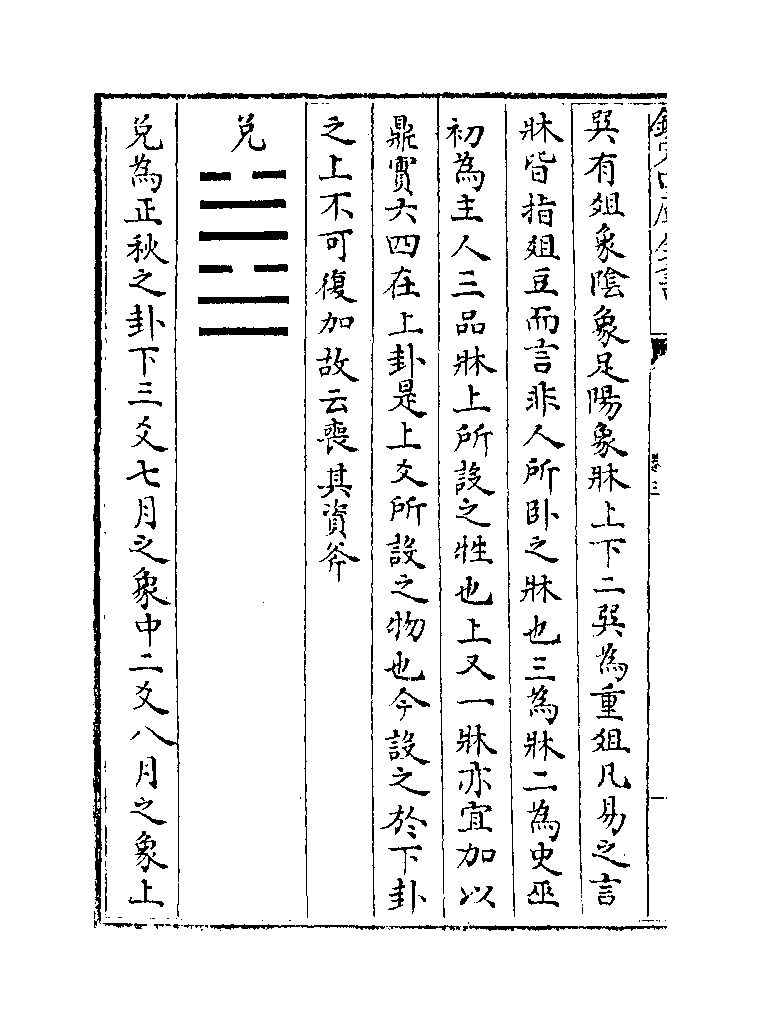 巽有俎象陰象足陽象牀上下二巽為重俎凡易之言
牀皆指俎豆而言非人所卧之牀也三為牀二為史巫
初為主人三品牀上所設之牲也上又一牀亦宜加以
鼎實六四在上卦是上爻所設之物也今設之於下卦
之上不可復加故云喪其資斧
兌
兌為正秋之卦下三爻七月之象中二爻八月之象上